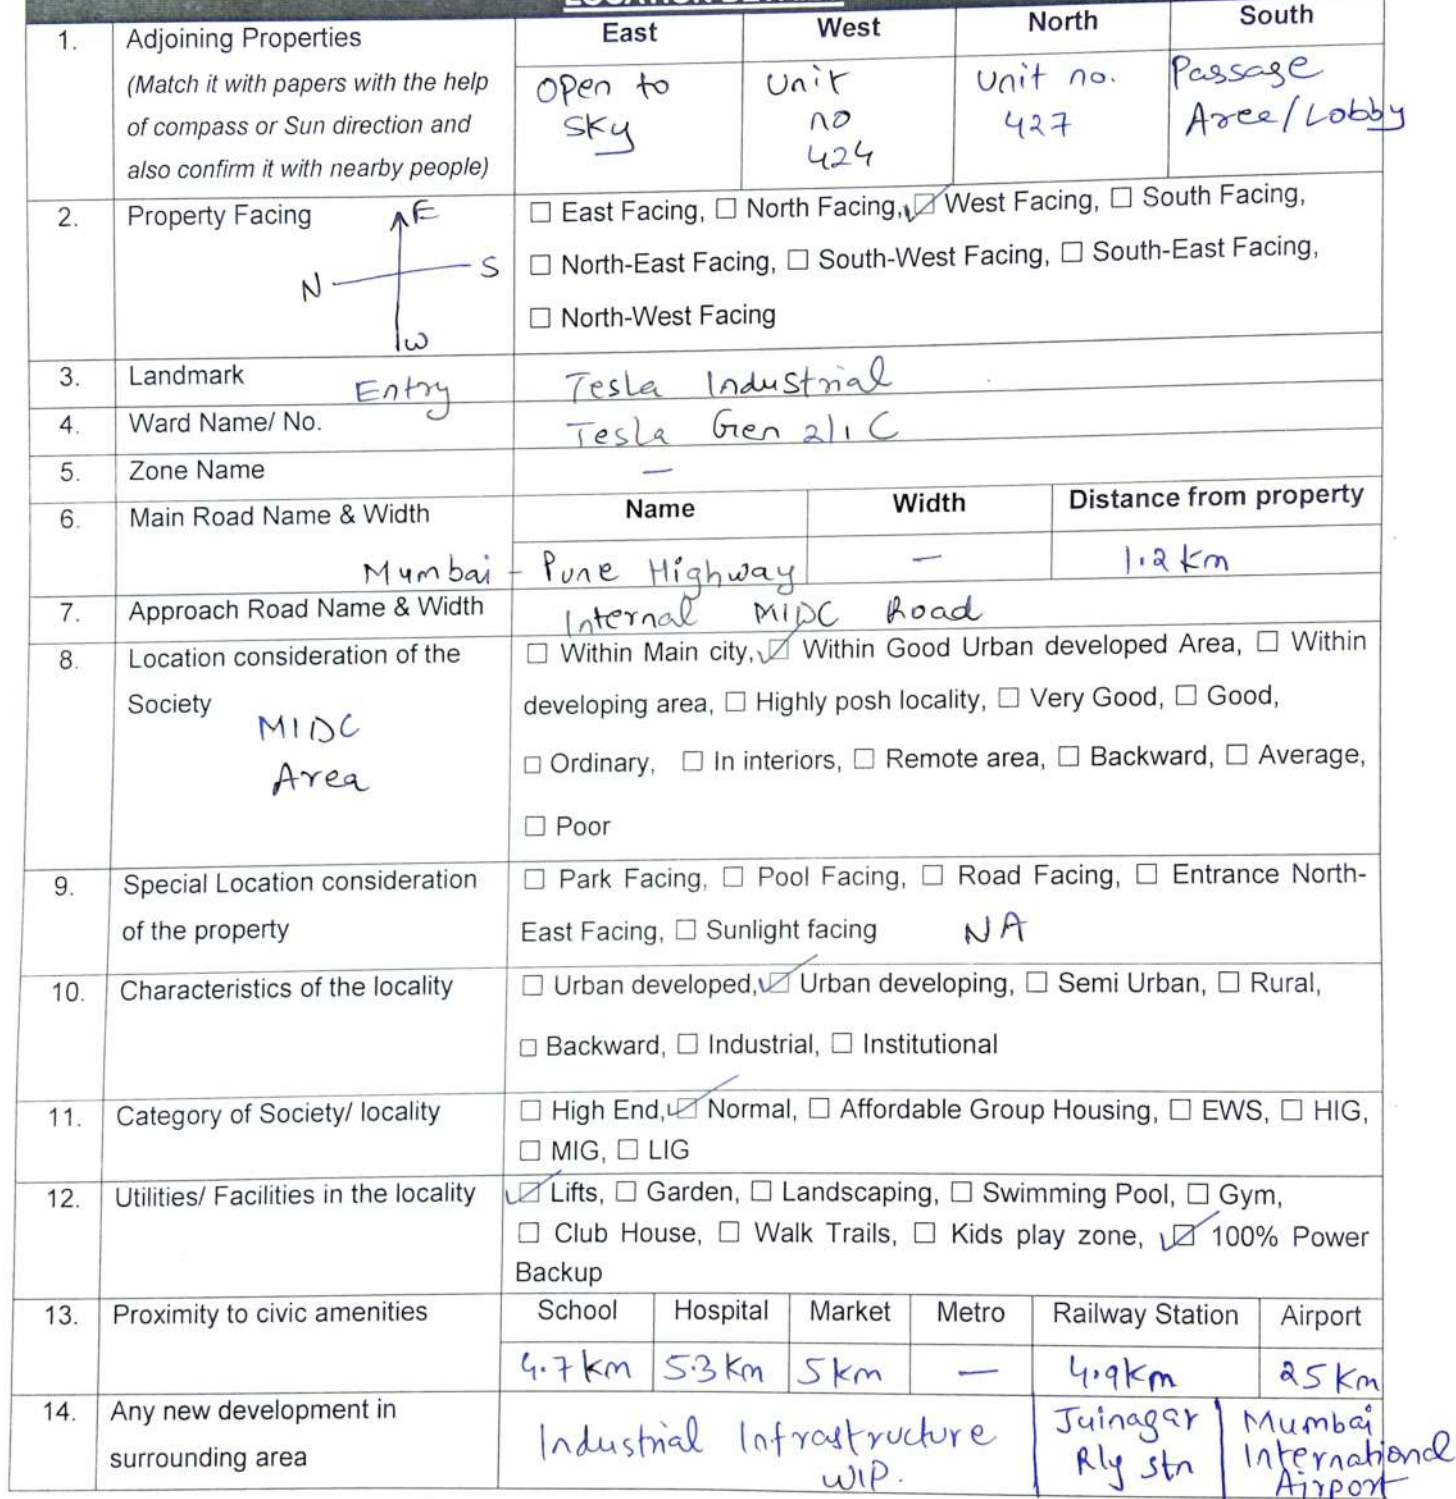 LOCATION DETAILS
1. Adjoining Properties
(Match it with papers with the help
of compass or Sun direction and
also confirm it with nearby people)
East West North South
Open to
Sky
Unit
no
424
Unit no.
427
Passage
Aree/Lobby
2. Property Facing
E
N S
W
Entry
☐ East Facing, ☐ North Facing, ☑ West Facing, ☐ South Facing,
☐ North-East Facing, ☐ South-West Facing, ☐ South-East Facing,
☐ North-West Facing
3. Landmark Tesla Industrial
4. Ward Name/ No. Tesla Gen 2/1 C
5. Zone Name —
6. Main Road Name & Width Name Width Distance from property
Mumbai - Pune Highway — 1.2 km
7. Approach Road Name & Width Internal MIDC Road
8. Location consideration of the
Society
MIDC
Area
☐ Within Main city, ☑ Within Good Urban developed Area, ☐ Within
developing area, ☐ Highly posh locality, ☐ Very Good, ☐ Good,
☐ Ordinary, ☐ In interiors, ☐ Remote area, ☐ Backward, ☐ Average,
☐ Poor
9. Special Location consideration
of the property
☐ Park Facing, ☐ Pool Facing, ☐ Road Facing, ☐ Entrance North-
East Facing, ☐ Sunlight facing NA
10. Characteristics of the locality
☐ Urban developed, ☑ Urban developing, ☐ Semi Urban, ☐ Rural,
☐ Backward, ☐ Industrial, ☐ Institutional
11. Category of Society/ locality
☐ High End, ☑ Normal, ☐ Affordable Group Housing, ☐ EWS, ☐ HIG,
☐ MIG, ☐ LIG
12. Utilities/ Facilities in the locality
☑ Lifts, ☐ Garden, ☐ Landscaping, ☐ Swimming Pool, ☐ Gym,
☐ Club House, ☐ Walk Trails, ☐ Kids play zone, ☑ 100% Power
Backup
13. Proximity to civic amenities
School Hospital Market Metro Railway Station Airport
4.7 km 5.3 Km 5 km — 4.9 km 25 Km
14. Any new development in
surrounding area
Industrial Infrastructure
WIP.
Juinagar
Rly stn
Mumbai
International
Airport